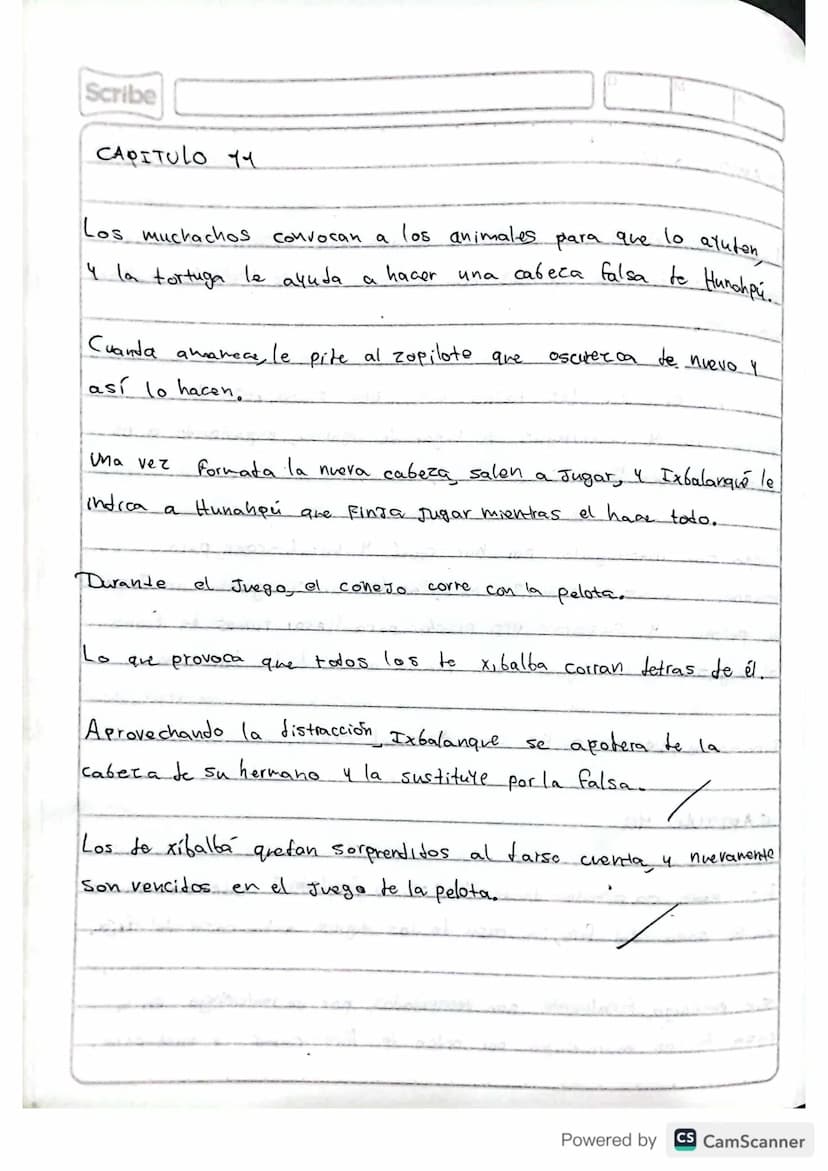 Scribe
CAPITULO 11
Los muchachos convocan a los animales para que lo ayuden,
y la tortuga le ayuda a hacer una cabeza falsa de Hunahpú.
Cuanda amanece, le pide al zopilote que oscurezca de nuevo y
así lo hacen.
Una vez formada la nueva cabeza, salen a jugar, y Ixbalanqué le
indica a Hunahpú que finja jugar mientras el hace todo.
Durante el juego, el conejo corre con la pelota.
Lo que provoca que todos los de xibalba corran detras de él.
Aprovechando la distracción, Ixbalanque se apodera de la
cabeza de su hermano y la sustituye por la falsa.
Los de xibalbá quedan sorprendidos al darse cuenta, y nuevamente
son vencidos en el juego de la pelota.
Powered by CS CamScanner